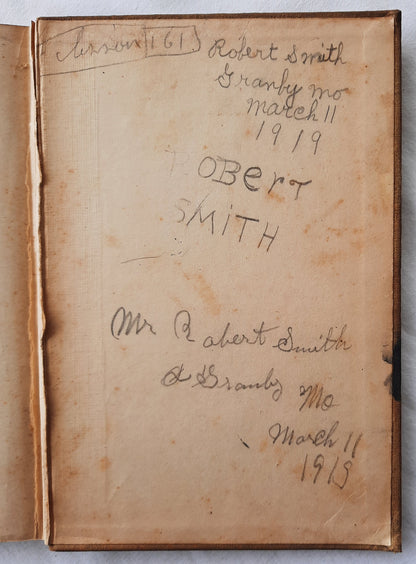 Lesson 161
Robert Smith
Granby Mo
March 11
1919
ROBerT
SMITH
Mr Robert Smith
Granby Mo
March 11
1919